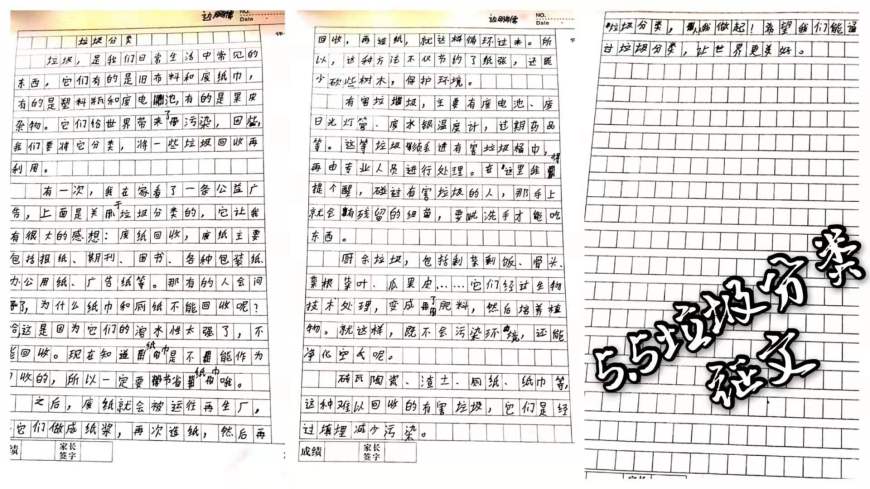 NO.
Date
垃圾分类
垃圾，是我们日常生活中常见的
东西，它们有的是旧布料和废纸巾，
有的是塑料瓶和废电池，有的是果皮
杂物。它们给世界带来了污染，因此，
我们要将它分类，将一些垃圾回收再
利用。
有一次，我在家看了一条公益广
告，上面是关于垃圾分类的，它让我
有很大的感想：废纸回收，废纸主要
包括报纸、期刊、图书、各种包装纸、
办公用纸、广告纸等。那有的人会问
了，为什么纸巾和厕纸不能回收呢？
这是因为它们的溶水性太强了，不
回收。现在知道纸巾是不能作为
收的，所以一定要节省纸巾哦。
之后，废纸就会被运往再生厂，
它们做成纸浆，再次造纸，然后再
成绩
家长
签字
NO.
Date
回收，再造纸，就这样循环过来。所
以，这种方法不仅节约了纸张，还能
少砍些树木，保护环境。
有害垃圾，主要有废电池、废
日光灯管、废水银温度计，过期药品
等。这等垃圾须丢进有害垃圾桶中，
再由专业人员进行处理。在这里我
提个醒，碰过有害垃圾的人，那手上
就会有残留的细菌，要吧洗手才能吃
东西。
厨余垃圾，包括剩菜剩饭、骨头、
菜根菜叶、瓜果皮……它们经过生物
技术处理，变成了肥料，然后培养植
物。就这样，既不会污染环境，还能
净化空气呢。
砖瓦陶瓷、渣土、厕纸、纸巾等，
这种难以回收的有害垃圾，它们是经
过填埋减少污染。
成绩
家长
签字
垃圾分类，从我做起！希望我们能通
过垃圾分类，让世界更美好。
5.5垃圾分类
征文